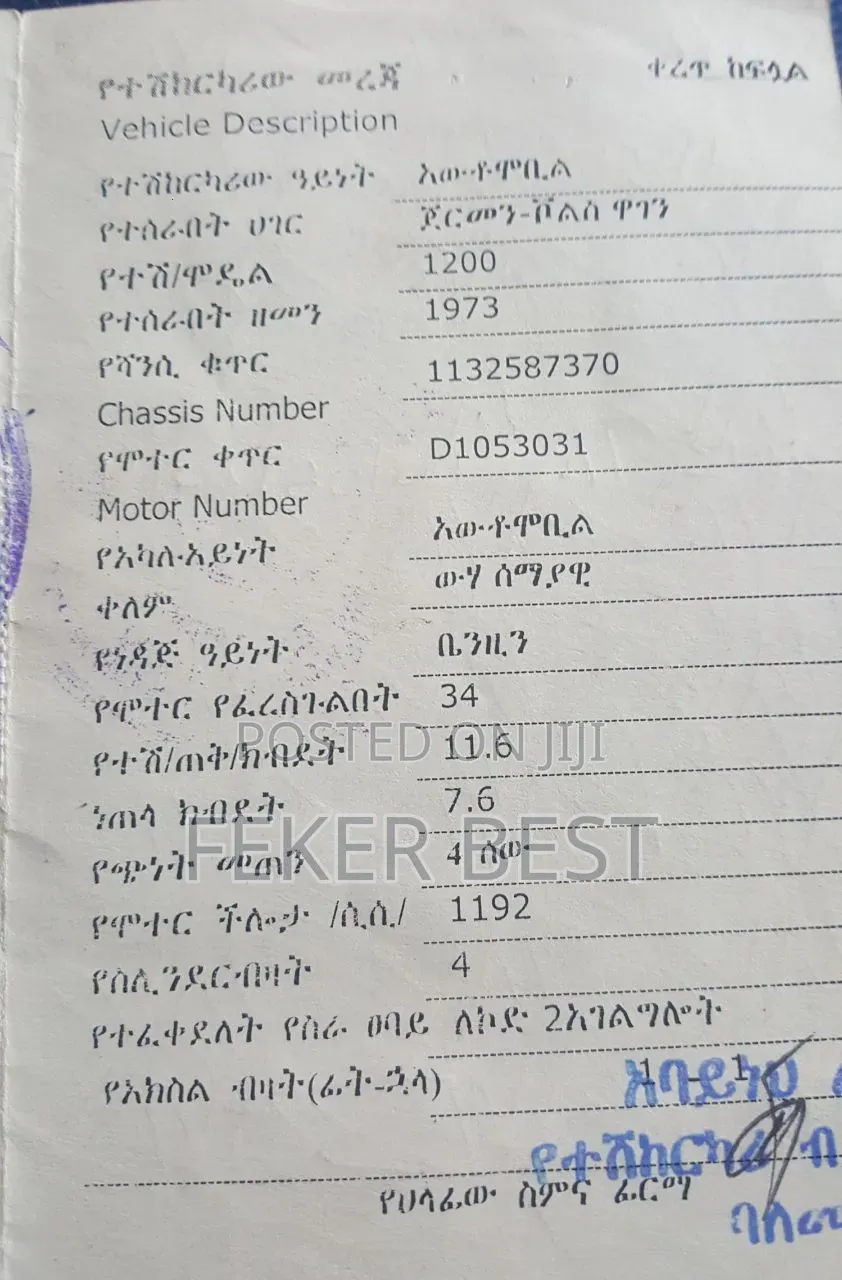 የተሽከርካሪው መረጃ
ቀረጥ ከፍሏል
Vehicle Description
የተሽከርካሪው ዓይነት አውቶሞቢል
የተሰራበት ሀገር ጀርመን-ቮልስ ዋገን
የተሽ/ሞዴል 1200
የተሰራበት ዘመን 1973
የሻንሲ ቁጥር 1132587370
Chassis Number
የሞተር ቀጥር D1053031
Motor Number
የአካሉአይነት አውቶሞቢል
ቀለም ውሃ ሰማያዊ
የነዳጅ ዓይነት ቤንዚን
የሞተር የፈረስጉልበት 34
የተሽ/ጠቅ/ክብደት 11.6
POSTED ON JIJI
ነጠላ ክብደት 7.6
የጭነት መጠን 4 ሰው
FEKER BEST
የሞተር ችሎታ /ሲ.ሲ/ 1192
የሲሊንደርብዛት 4
የተፈቀደለት የስራ ፀባይ ለኮድ 2አገልግሎት
የአክስል ብዛት(ፊት-ኋላ) 1 - 1
አባይነህ
የተሽከርካሪ
የሀላፊው ስምና ፊርማ